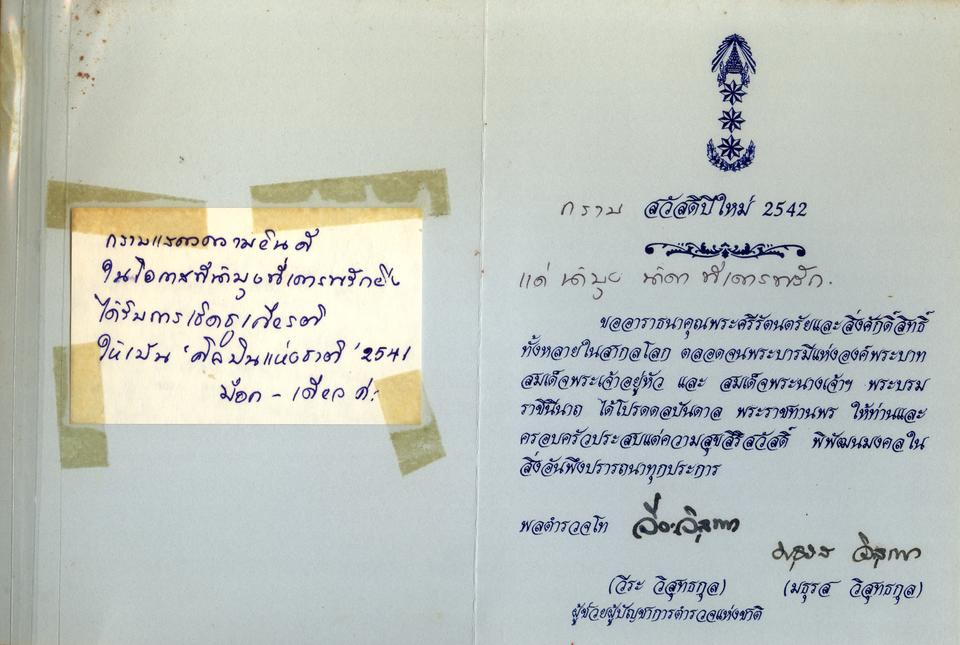 กราบแสดงความยินดี
ในโอกาสที่น้าบูรที่เคารพรักยิ่ง
ได้รับการเชิดชูเกียรติ
ให้เป็น 'ศิลปินแห่งชาติ' 2541
กราบ สวัสดีปีใหม่ 2542
แด่ น้า น้า ที่เคารพรัก.
ขออาราธนาคุณพระศรีรัตนตรัยและสิ่งศักดิ์สิทธิ์
ทั้งหลายในสากลโลก ตลอดจนพระบารมีแห่งองค์พระบาท
สมเด็จพระเจ้าอยู่หัว และ สมเด็จพระนางเจ้าฯ พระบรม
ราชินีนาถ ได้โปรดดลบันดาล พระราชทานพร ให้ท่านและ
ครอบครัวประสบแต่ความสุขสิริสวัสดิ์ พิพัฒนมงคลใน
สิ่งอันพึงปรารถนาทุกประการ
พลตำรวจโท
(วีระ วิสุทธกุล) (มธุรส วิสุทธกุล)
ผู้ช่วยผู้บัญชาการตำรวจแห่งชาติ